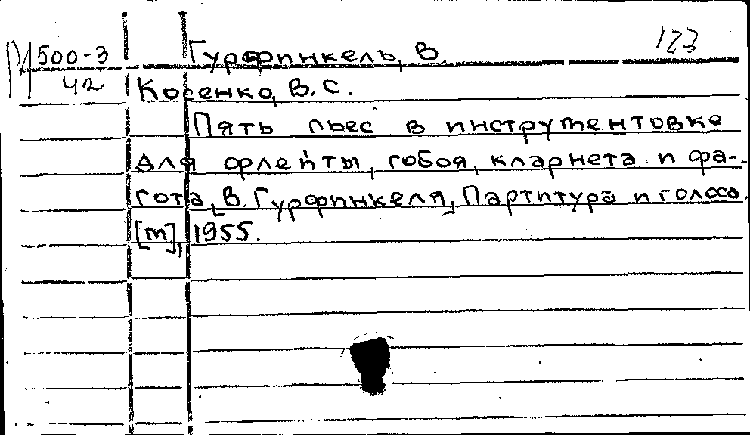 123
М 500-3 Гурфинкель, В.
42 Косенко, В.С.
Пять пьес в инструментовке
для флейты, гобоя, кларнета и фа-
гота, В. Гурфинкеля, Партитура и голоса.
[m], 1955.